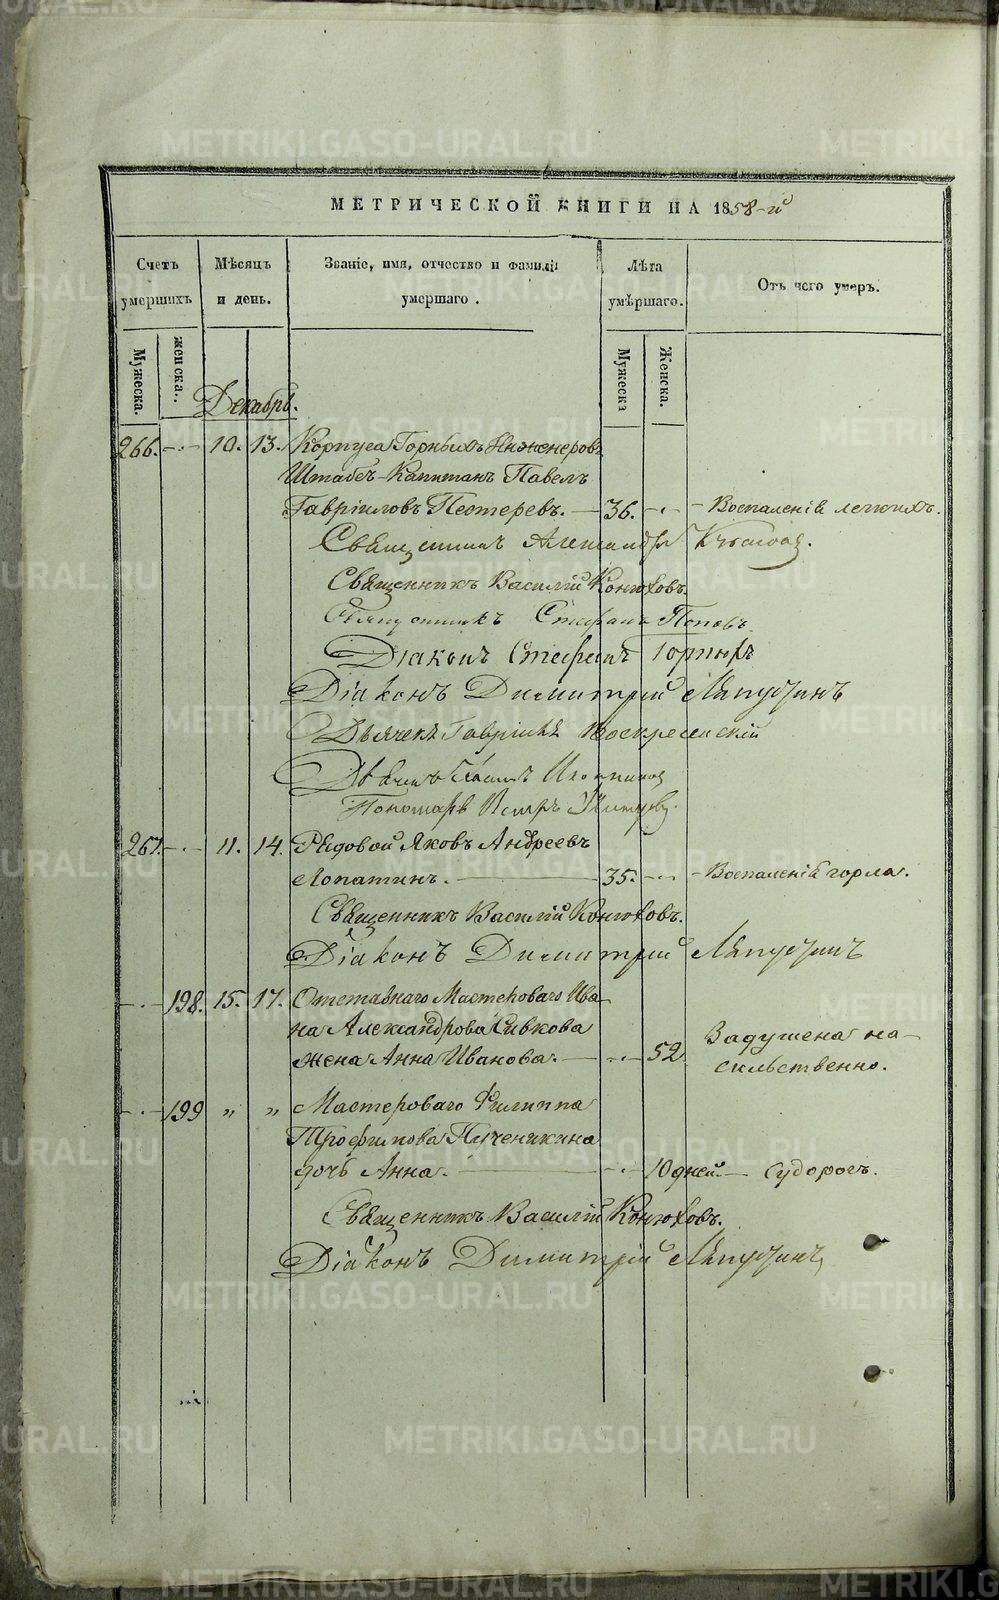 МЕТРИЧЕСКОЙ КНИГИ НА 1858-й
Счетъ умершихъ
Мѣсяцъ и день.
Званіе, имя, отчество и фамилія умершаго.
Лѣта умѣршаго.
Отъ чего умеръ.
Мужеска.
женска..
Мужеска
Женска.
Декабрь.
266. 10. 13. Корпуса Горныхъ Инженеровъ
Штабсъ-Капитанъ Павелъ
Гавріиловъ 36. Воспаленій легкихъ.
Священникъ Александръ
Священникъ Василій Конюховъ.
Священникъ Стефанъ Поповъ
Діаконъ Стефанъ
Діаконъ Димитрій Ляпустинъ
Дьячекъ Гавріилъ Воскресенскій
Пономарь Петръ
267. 11. 14. Рядовой Яковъ Андреевъ
Лопатинъ. 35. Воспаленій горла.
Священникъ Василій Конюховъ.
Діаконъ Димитрій Ляпустинъ
198. 15. 17. Отставнаго Мастероваго Ива-
на Александрова Сивкова
жена Анна Иванова. 52 Задушена на-
сильственно.
199 " " Мастероваго Филиппа
Трофимова
дочь Анна. 10 дней. Судорогъ.
Священникъ Василій Конюховъ.
Діаконъ Димитрій Ляпустинъ
METRIKI.GASO-URAL.RU